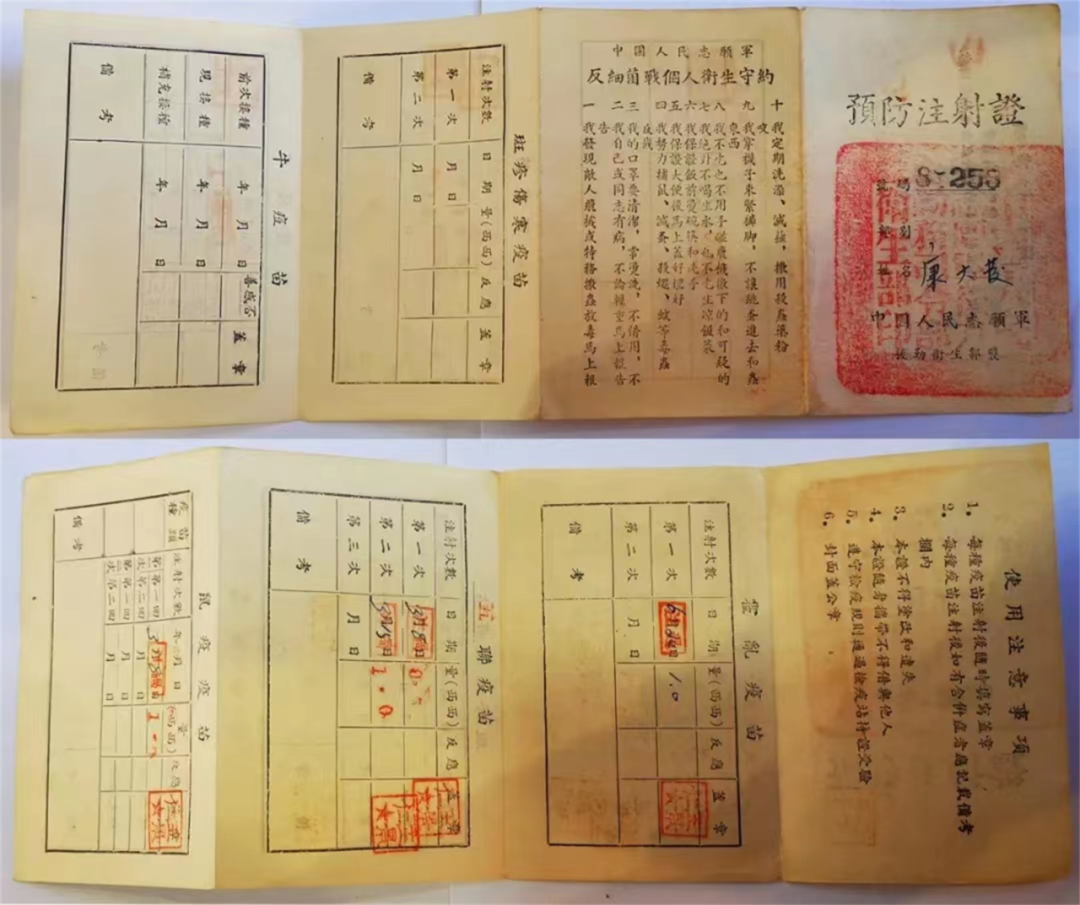 預防注射證
號碼 8-256
組別
姓名 康大茂
中國人民志願軍
後勤衛生部製
中國人民志願軍
反細菌戰個人衛生守約
十 我定期洗澡、滅蝨、撒用殺蟲藥粉
九 我穿襪子束緊褲脚，不讓跳蚤進去和蟲咬
八 我不吃也不用手碰敵機撒下的和可疑的東西
七 我絕對不喝生水，也不吃生涼飯菜
六 我保證飯前燙碗筷和洗手
五 我保證大便後馬上蓋好埋好
四 我努力捕鼠、滅蚤、殺蠅、蚊等毒蟲
三 我的口罩要清潔，常燙洗，不借用，不
二 我自己或同志有病，不論輕重馬上報告
一 我發現敵人飛機或特務撒蟲放毒馬上報告
斑疹傷寒疫苗
注射次數 日期 量(西西) 反應 蓋章
第一次 月 日
第二次 月 日
備考
牛痘苗
前次接種 年 月 日 善感否 蓋章
現接種 年 月 日
補充接種 年 月 日
備考
使用注意事項
1. 每種疫苗注射後隨時填寫蓋章
2. 每種疫苗注射後如有合併症者應記載備考
欄内
3. 本證不得塗改和遺失
4. 本證隨身攜帶不得借與他人
5. 遵守檢疫規則通過檢疫站持證交驗
6. 封面蓋公章
霍亂疫苗
注射次數 日期 量(西西) 反應 蓋章
第一次 6月 日 1.0
第二次 月 日
備考
五聯疫苗
注射次數 日期 量(西西) 反應 蓋章
第一次 月 日
第二次 月15日 1.0
第三次 月 日
備考
鼠疫疫苗
疫苗種類 注射次數 年 月 日 量(西西) 反應 蓋章
第一次 第一回 月 日
第一次 第二回 月 日
第二次 第一回 月 日
第二次 第二回 月 日
備考